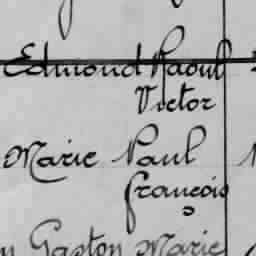 Edmond Raoul
Victor
Marie Paul
françois
Gaston Marie